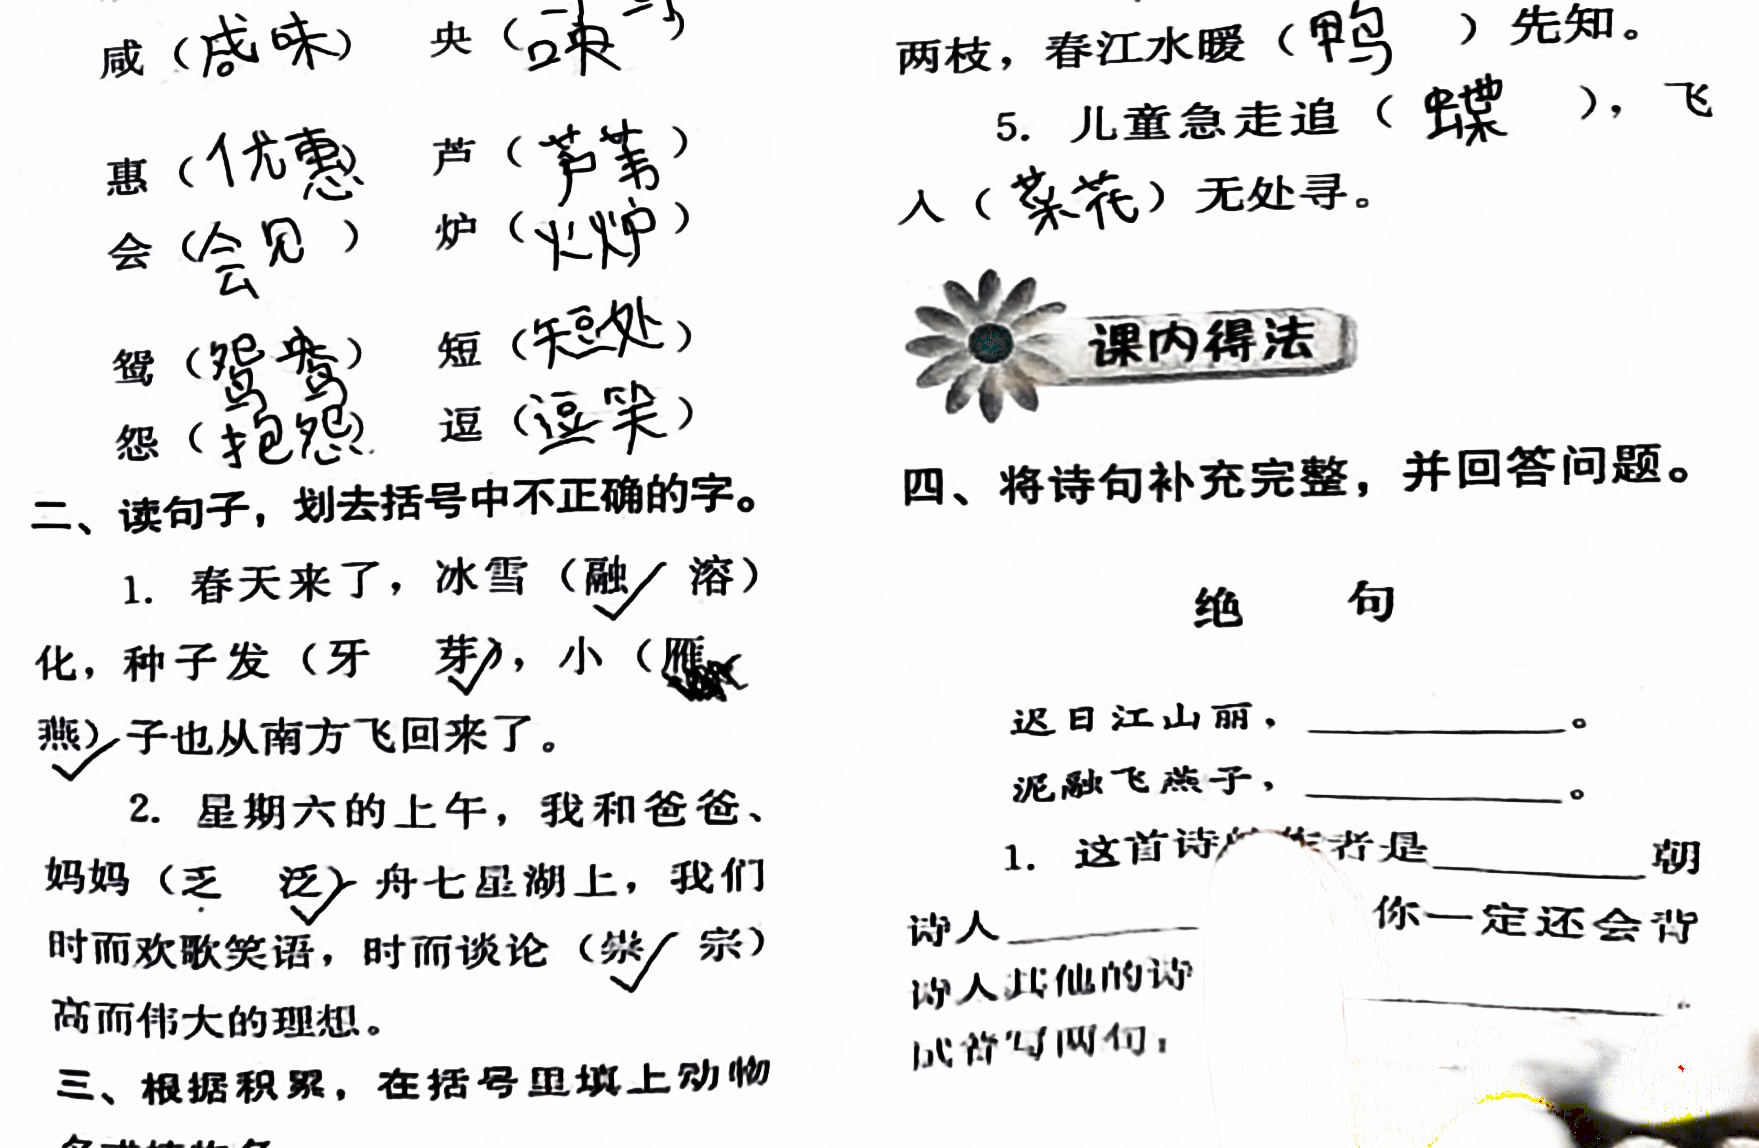 咸（咸味） 央（
惠（优惠） 芦（芦苇）
会（会见） 炉（火炉）
鸳（鸳鸯） 短（短处）
怨（抱怨） 逗（逗笑）
二、读句子，划去括号中不正确的字。
1. 春天来了，冰雪（融 溶）
化，种子发（牙 芽），小（雁
燕）子也从南方飞回来了。
2. 星期六的上午，我和爸爸、
妈妈（乏 泛）舟七星湖上，我们
时而欢歌笑语，时而谈论（崇 宗）
高而伟大的理想。
三、根据积累，在括号里填上动物
两枝，春江水暖（鸭）先知。
5. 儿童急走追（蝶），飞
入（菜花）无处寻。
课内得法
四、将诗句补充完整，并回答问题。
绝 句
迟日江山丽，________。
泥融飞燕子，________。
1. 这首诗 作者是________朝
诗人________ 你一定还会背
诗人其他的诗 ________。
试着写两句：